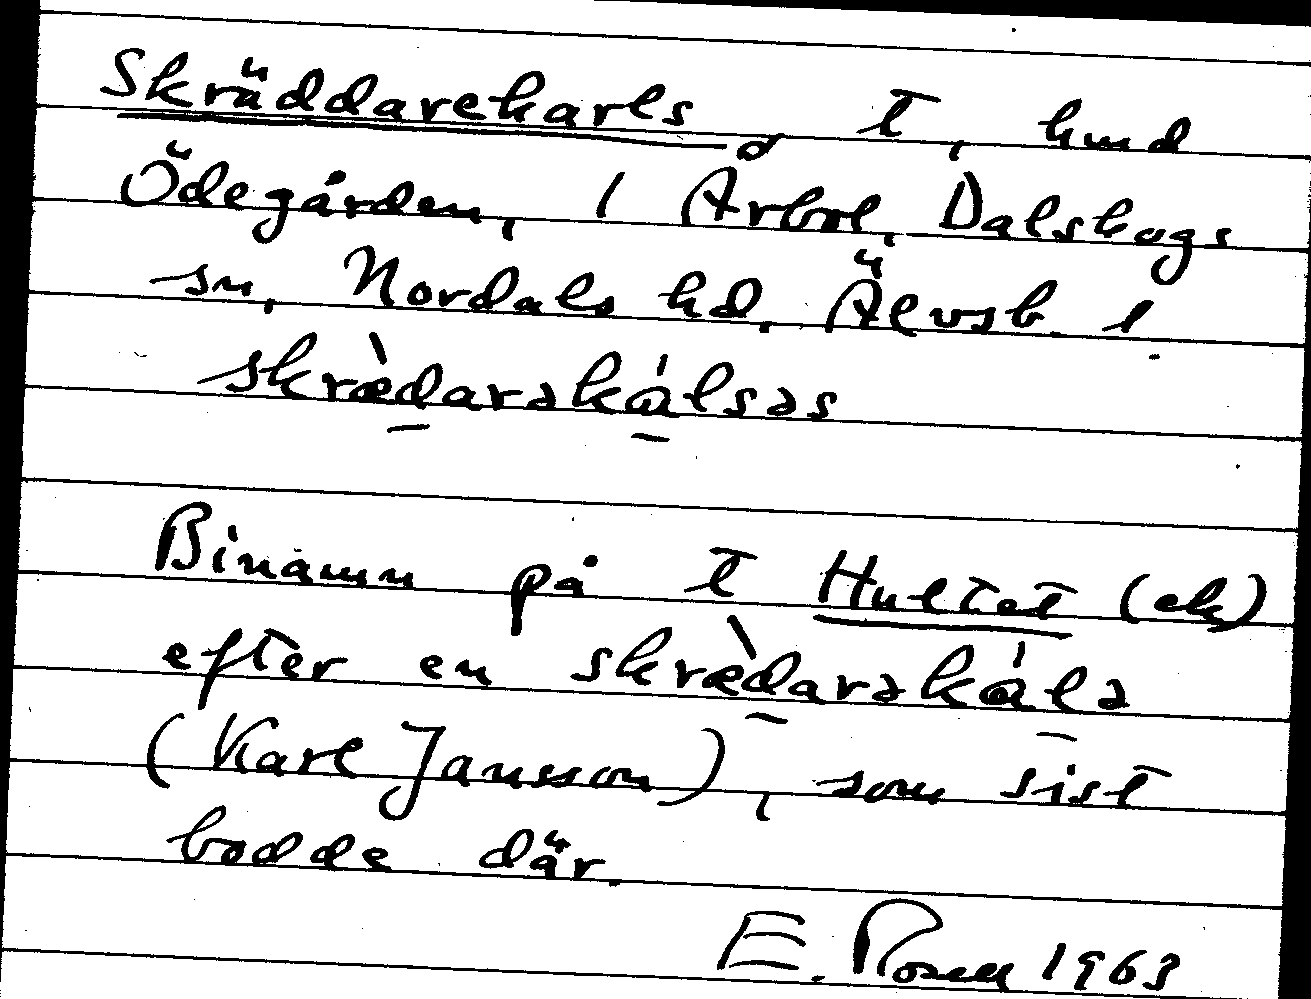 Skräddarekarls, t, hmd
Ödegården, 1 Årbol, Dalskogs
sn, Nordals hd, Älvsb. l.
skræ̀d̲arəkɑ́lsəs
Binamn på t Hultet (ek)
efter en skræ̀d̲arəkɑ́lə
(Karl Jansson), som sist
bodde där.
E. Rosell 1963